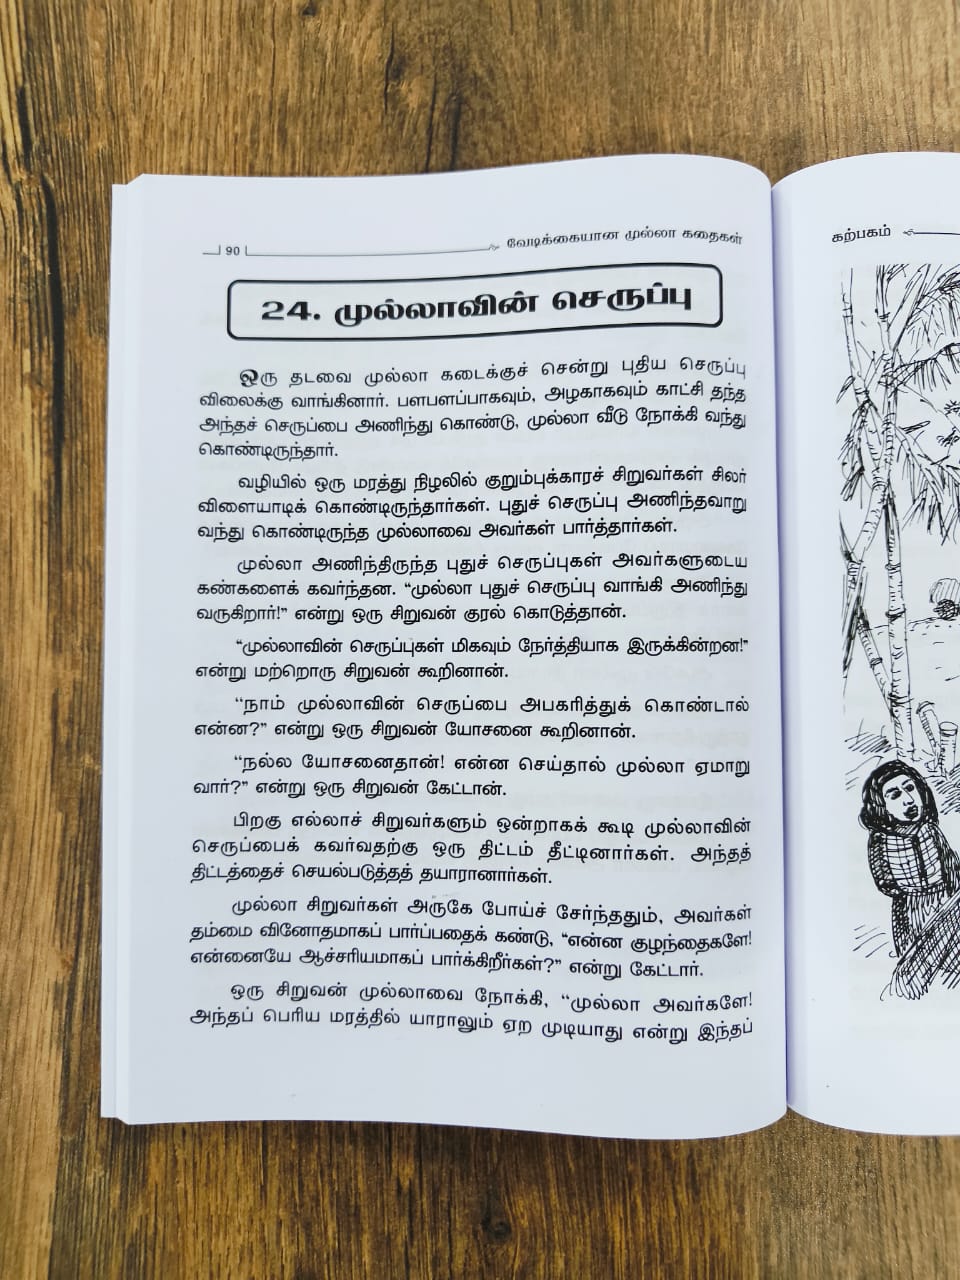 90
வேடிக்கையான முல்லா கதைகள்
24. முல்லாவின் செருப்பு
ஒரு தடவை முல்லா கடைக்குச் சென்று புதிய செருப்பு
விலைக்கு வாங்கினார். பளபளப்பாகவும், அழகாகவும் காட்சி தந்த
அந்தச் செருப்பை அணிந்து கொண்டு, முல்லா வீடு நோக்கி வந்து
கொண்டிருந்தார்.
வழியில் ஒரு மரத்து நிழலில் குறும்புக்காரச் சிறுவர்கள் சிலர்
விளையாடிக் கொண்டிருந்தார்கள். புதுச் செருப்பு அணிந்தவாறு
வந்து கொண்டிருந்த முல்லாவை அவர்கள் பார்த்தார்கள்.
முல்லா அணிந்திருந்த புதுச் செருப்புகள் அவர்களுடைய
கண்களைக் கவர்ந்தன. “முல்லா புதுச் செருப்பு வாங்கி அணிந்து
வருகிறார்!” என்று ஒரு சிறுவன் குரல் கொடுத்தான்.
“முல்லாவின் செருப்புகள் மிகவும் நேர்த்தியாக இருக்கின்றன!”
என்று மற்றொரு சிறுவன் கூறினான்.
“நாம் முல்லாவின் செருப்பை அபகரித்துக் கொண்டால்
என்ன?” என்று ஒரு சிறுவன் யோசனை கூறினான்.
“நல்ல யோசனைதான்! என்ன செய்தால் முல்லா ஏமாறு
வார்?” என்று ஒரு சிறுவன் கேட்டான்.
பிறகு எல்லாச் சிறுவர்களும் ஒன்றாகக் கூடி முல்லாவின்
செருப்பைக் கவர்வதற்கு ஒரு திட்டம் தீட்டினார்கள். அந்தத்
திட்டத்தைச் செயல்படுத்தத் தயாரானார்கள்.
முல்லா சிறுவர்கள் அருகே போய்ச் சேர்ந்ததும், அவர்கள்
தம்மை வினோதமாகப் பார்ப்பதைக் கண்டு, “என்ன குழந்தைகளே!
என்னையே ஆச்சரியமாகப் பார்க்கிறீர்கள்?” என்று கேட்டார்.
ஒரு சிறுவன் முல்லாவை நோக்கி, “முல்லா அவர்களே!
அந்தப் பெரிய மரத்தில் யாராலும் ஏற முடியாது என்று இந்தப்
கற்பகம்